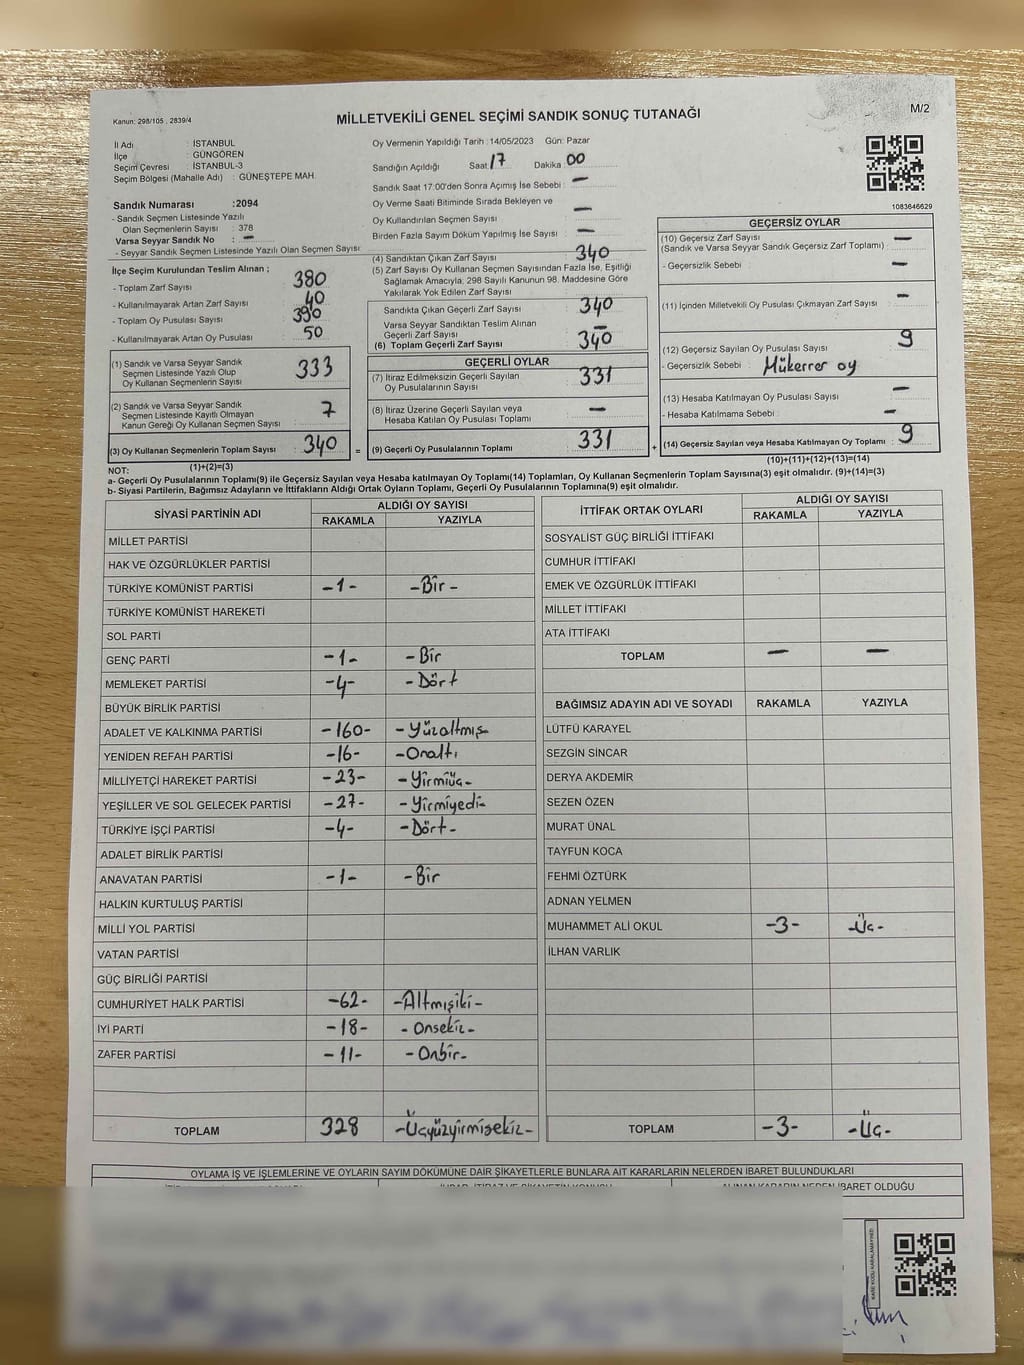 Kanun: 298/105 , 2839/4
MİLLETVEKİLİ GENEL SEÇİMİ SANDIK SONUÇ TUTANAĞI
M/2
İl Adı : İSTANBUL
İlçe : GÜNGÖREN
Seçim Çevresi : İSTANBUL-3
Seçim Bölgesi (Mahalle Adı) : GÜNEŞTEPE MAH.
Sandık Numarası :2094
- Sandık Seçmen Listesinde Yazılı
Olan Seçmenlerin Sayısı : 378
Varsa Seyyar Sandık No : -
- Seyyar Sandık Seçmen Listesinde Yazılı Olan Seçmen Sayısı:
Oy Vermenin Yapıldığı Tarih : 14/05/2023 Gün: Pazar
Sandığın Açıldığı Saat 17 Dakika 00
Sandık Saat 17:00'den Sonra Açımış İse Sebebi : -
Oy Verme Saati Bitiminde Sırada Bekleyen ve
Oy Kullandırılan Seçmen Sayısı : -
Birden Fazla Sayım Döküm Yapılmış İse Sayısı : -
1083646629
İlçe Seçim Kurulundan Teslim Alınan ;
- Toplam Zarf Sayısı : 380
- Kullanılmayarak Artan Zarf Sayısı : 40
- Toplam Oy Pusulası Sayısı : 390
- Kullanılmayarak Artan Oy Pusulası : 50
(1) Sandık ve Varsa Seyyar Sandık
Seçmen Listesinde Yazılı Olup
Oy Kullanan Seçmenlerin Sayısı : 333
(2) Sandık ve Varsa Seyyar Sandık
Seçmen Listesinde Kayıtlı Olmayan
Kanun Gereği Oy Kullanan Seçmen Sayısı : 7
(3) Oy Kullanan Seçmenlerin Toplam Sayısı : 340
(1)+(2)=(3)
(4) Sandıktan Çıkan Zarf Sayısı : 340
(5) Zarf Sayısı Oy Kullanan Seçmen Sayısından Fazla İse, Eşitliği
Sağlamak Amacıyla, 298 Sayılı Kanunun 98. Maddesine Göre
Yakılarak Yok Edilen Zarf Sayısı :
Sandıkta Çıkan Geçerli Zarf Sayısı : 340
Varsa Seyyar Sandıktan Teslim Alınan
Geçerli Zarf Sayısı : -
(6) Toplam Geçerli Zarf Sayısı : 340
GEÇERLİ OYLAR
(7) İtiraz Edilmeksizin Geçerli Sayılan
Oy Pusulalarının Sayısı : 331
(8) İtiraz Üzerine Geçerli Sayılan veya
Hesaba Katılan Oy Pusulası Toplamı : -
= (9) Geçerli Oy Pusulalarının Toplamı : 331 +
GEÇERSİZ OYLAR
(10) Geçersiz Zarf Sayısı
(Sandık ve Varsa Seyyar Sandık Geçersiz Zarf Toplamı) : -
- Geçersizlik Sebebi : -
(11) İçinden Milletvekili Oy Pusulası Çıkmayan Zarf Sayısı : -
(12) Geçersiz Sayılan Oy Pusulası Sayısı : 9
- Geçersizlik Sebebi : Mükerrer oy
(13) Hesaba Katılmayan Oy Pusulası Sayısı : -
- Hesaba Katılmama Sebebi : -
(14) Geçersiz Sayılan veya Hesaba Katılmayan Oy Toplamı : 9
(10)+(11)+(12)+(13)=(14)
NOT:
a- Geçerli Oy Pusulalarının Toplamı(9) ile Geçersiz Sayılan veya Hesaba katılmayan Oy Toplamı(14) Toplamları, Oy Kullanan Seçmenlerin Toplam Sayısına(3) eşit olmalıdır. (9)+(14)=(3)
b- Siyasi Partilerin, Bağımsız Adayların ve İttifakların Aldığı Ortak Oyların Toplamı, Geçerli Oy Pusulalarının Toplamına(9) eşit olmalıdır.
SİYASİ PARTİNİN ADI ALDIĞI OY SAYISI
RAKAMLA YAZIYLA
MİLLET PARTİSİ
HAK VE ÖZGÜRLÜKLER PARTİSİ
TÜRKİYE KOMÜNİST PARTİSİ -1- -Bir-
TÜRKİYE KOMÜNİST HAREKETİ
SOL PARTİ
GENÇ PARTİ -1- -Bir
MEMLEKET PARTİSİ -4- -Dört
BÜYÜK BİRLİK PARTİSİ
ADALET VE KALKINMA PARTİSİ -160- -Yüzaltmış-
YENİDEN REFAH PARTİSİ -16- -Onaltı
MİLLİYETÇİ HAREKET PARTİSİ -23- -Yirmiüç-
YEŞİLLER VE SOL GELECEK PARTİSİ -27- -Yirmiyedi-
TÜRKİYE İŞÇİ PARTİSİ -4- -Dört-
ADALET BİRLİK PARTİSİ
ANAVATAN PARTİSİ -1- -Bir
HALKIN KURTULUŞ PARTİSİ
MİLLİ YOL PARTİSİ
VATAN PARTİSİ
GÜÇ BİRLİĞİ PARTİSİ
CUMHURİYET HALK PARTİSİ -62- -Altmışiki-
İYİ PARTİ -18- -Onsekiz-
ZAFER PARTİSİ -11- -Onbir-
TOPLAM 328 -Üçyüzyirmisekiz-
İTTİFAK ORTAK OYLARI ALDIĞI OY SAYISI
RAKAMLA YAZIYLA
SOSYALİST GÜÇ BİRLİĞİ İTTİFAKI
CUMHUR İTTİFAKI
EMEK VE ÖZGÜRLÜK İTTİFAKI
MİLLET İTTİFAKI
ATA İTTİFAKI
TOPLAM - -
BAĞIMSIZ ADAYIN ADI VE SOYADI RAKAMLA YAZIYLA
LÜTFÜ KARAYEL
SEZGİN SİNCAR
DERYA AKDEMİR
SEZEN ÖZEN
MURAT ÜNAL
TAYFUN KOCA
FEHMİ ÖZTÜRK
ADNAN YELMEN
MUHAMMET ALİ OKUL -3- -Üç-
İLHAN VARLIK
TOPLAM -3- -Üç-
OYLAMA İŞ VE İŞLEMLERİNE VE OYLARIN SAYIM DÖKÜMÜNE DAİR ŞİKAYETLERLE BUNLARA AİT KARARLARIN NELERDEN İBARET BULUNDUKLARI
İHBAR, İTİRAZ VE ŞİKAYETİN KONUSU ALINAN KARARIN NEDEN İBARET OLDUĞU
KARE KODU KARALAMAYINIZ!